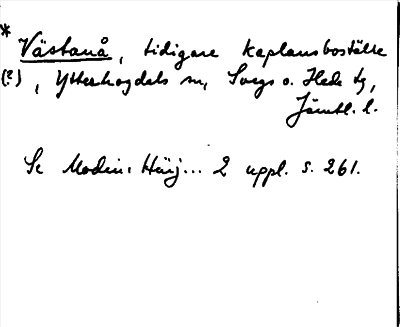 *
Västanå, tidigare kaplansboställe
(?), Ytterhogdals sn, Svegs o. Hede tg,
Jämtl. l.
Se Modin: Härj... 2 uppl. s. 261.